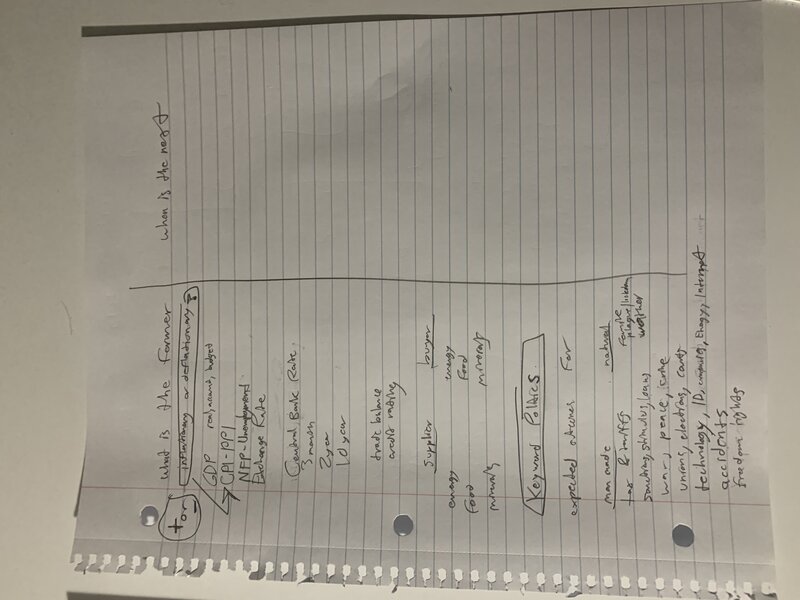 what is the former when is the next
for inflationary or deflationary?
GDP real, nominal, budget
CPI - PPI
NFP - Unemployment
Exchange Rate
Central Bank Rate
3 month
2 year
10 year
trade balance
credit rating
Supplier buyer
energy energy
food food
minerals minerals
Keyword Politics
expected outcomes For
man made natural
tax & tariffs famine
plague
Sanctions, stimulus, loans weather
war, peace, crime
unions, elections, courts
technology, ID, computer, Energy, Internet
accidents
freedom rights